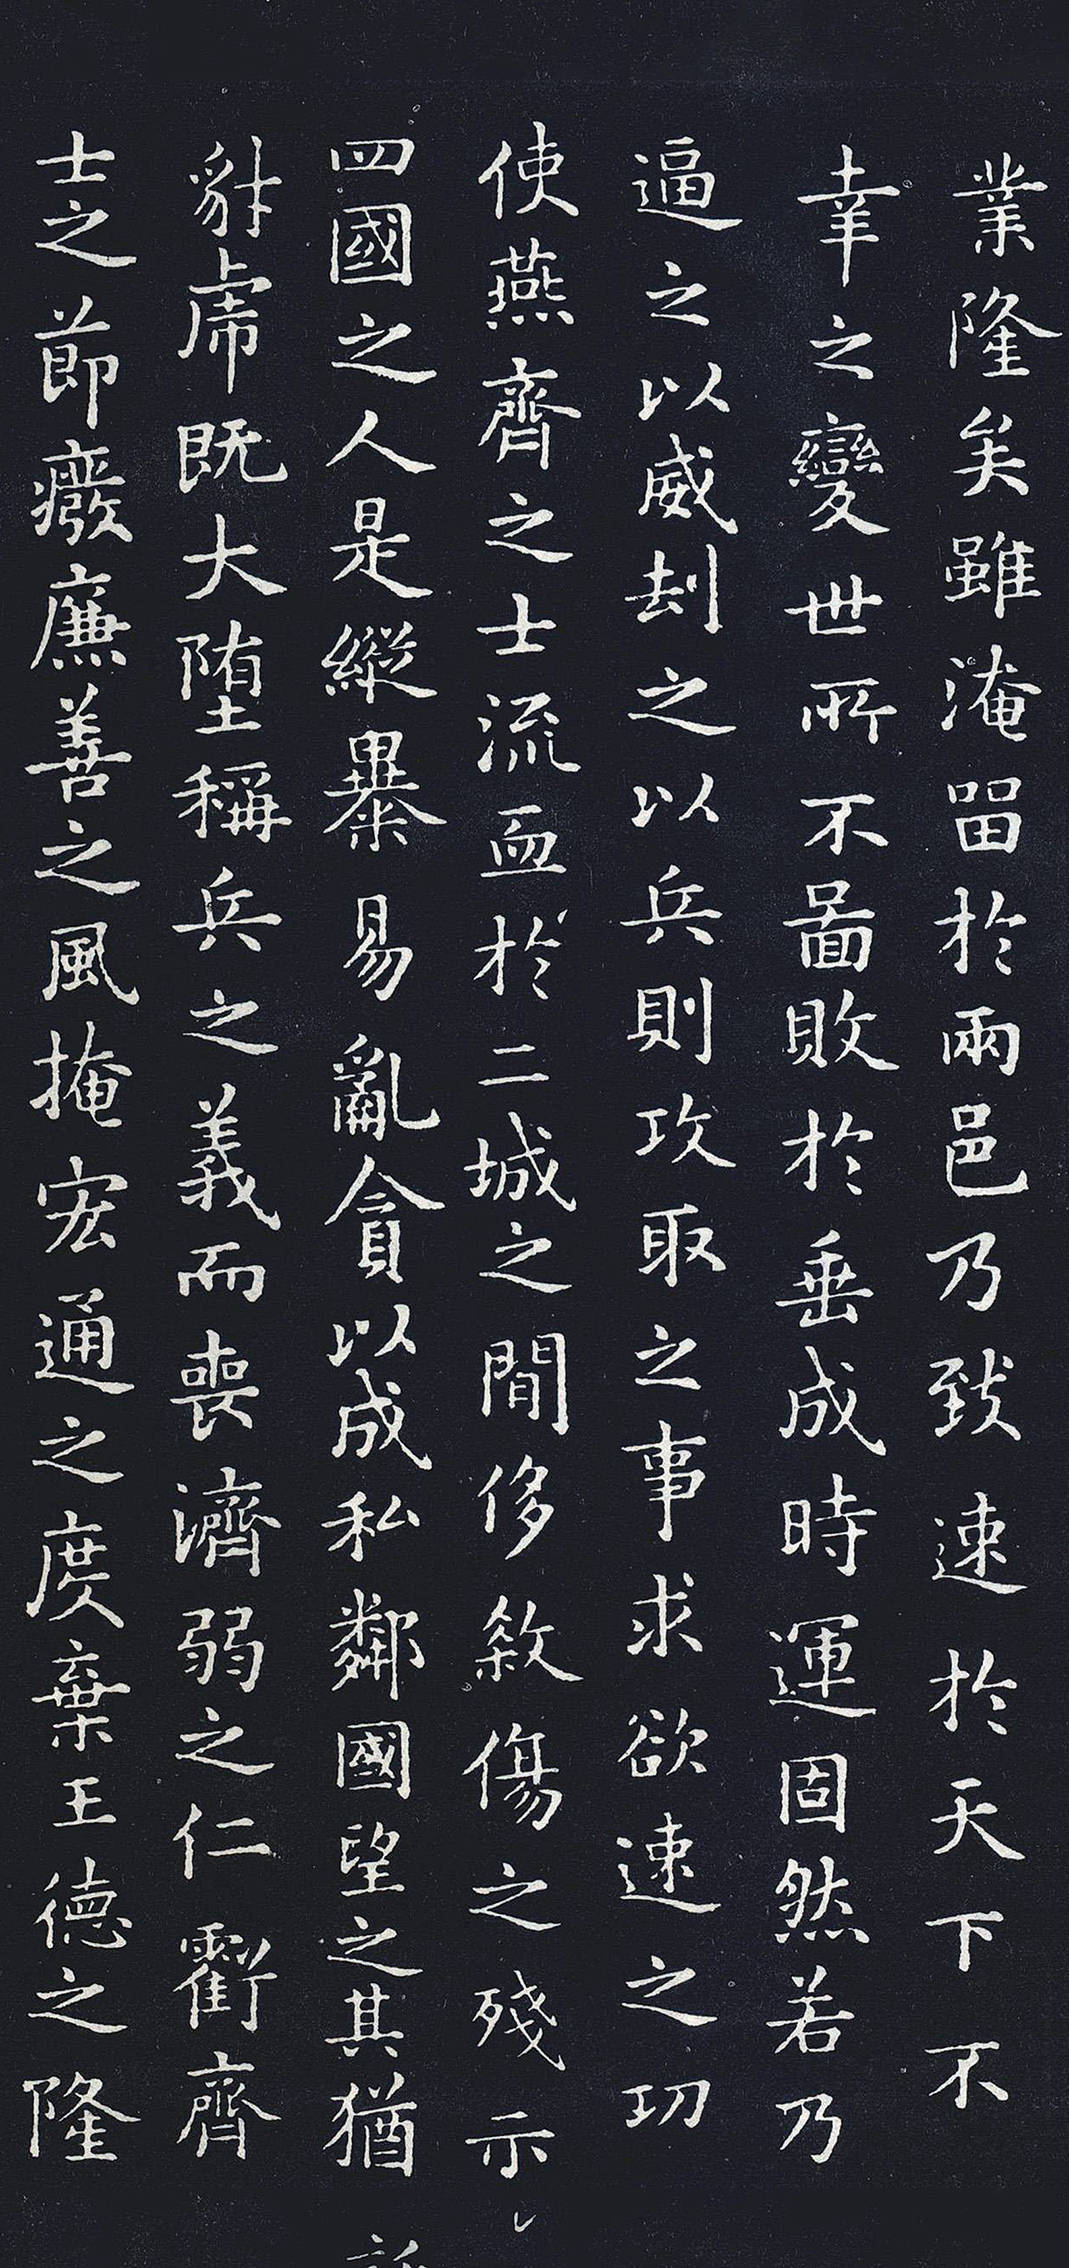 業隆矣雖淹留於兩邑乃致速於天下不
幸之變世所不啚敗於垂成時運固然若乃
逼之以威劫之以兵則攻取之事求欲速之功
使燕齊之士流血於二城之間侈煞傷之殘示
四國之人是縱暴易亂貪以成私鄰國望之其猶
豺虎既大墮稱兵之義而喪濟弱之仁虧齊
士之節廢廉善之風掩宏通之度棄王德之隆